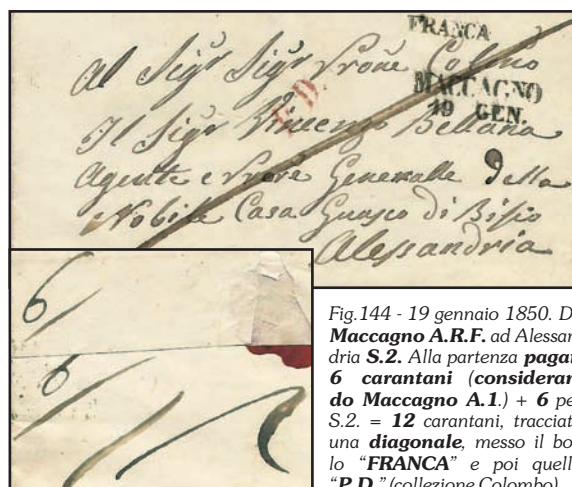 FRANCA
Al Sigr Sigr Prone Colmo
MACCAGNO
19 GEN.
P.D.
Il Sigr Vincenzo Bellana
Agente e Generalle della
Nobile Casa Guasco di Bisio
Alessandria
6
6
Fig.144 - 19 gennaio 1850. D
Maccagno A.R.F. ad Alessan
dria S.2. Alla partenza pagar
6 carantani (consideran
do Maccagno A.1.) + 6 pe
S.2. = 12 carantani, tracciat
una diagonale, messo il bo
lo "FRANCA" e poi quell
"P.D." (collezione Colombo)